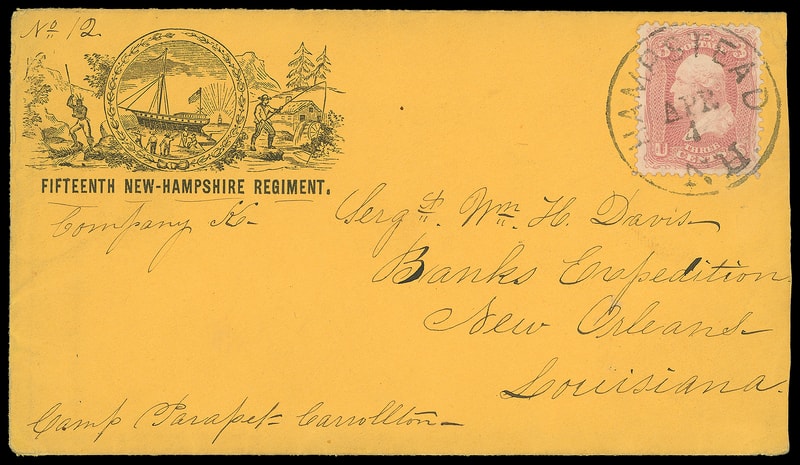 No 12
FIFTEENTH NEW-HAMPSHIRE REGIMENT.
Company K
HAMPSTEAD
APR
4
N.H
U S
POSTAGE
3 3
THREE
CENTS
Sergt. Wm. H. Davis
Banks Expedition
New Orleans
Louisiana.
Camp Parapet Carrollton